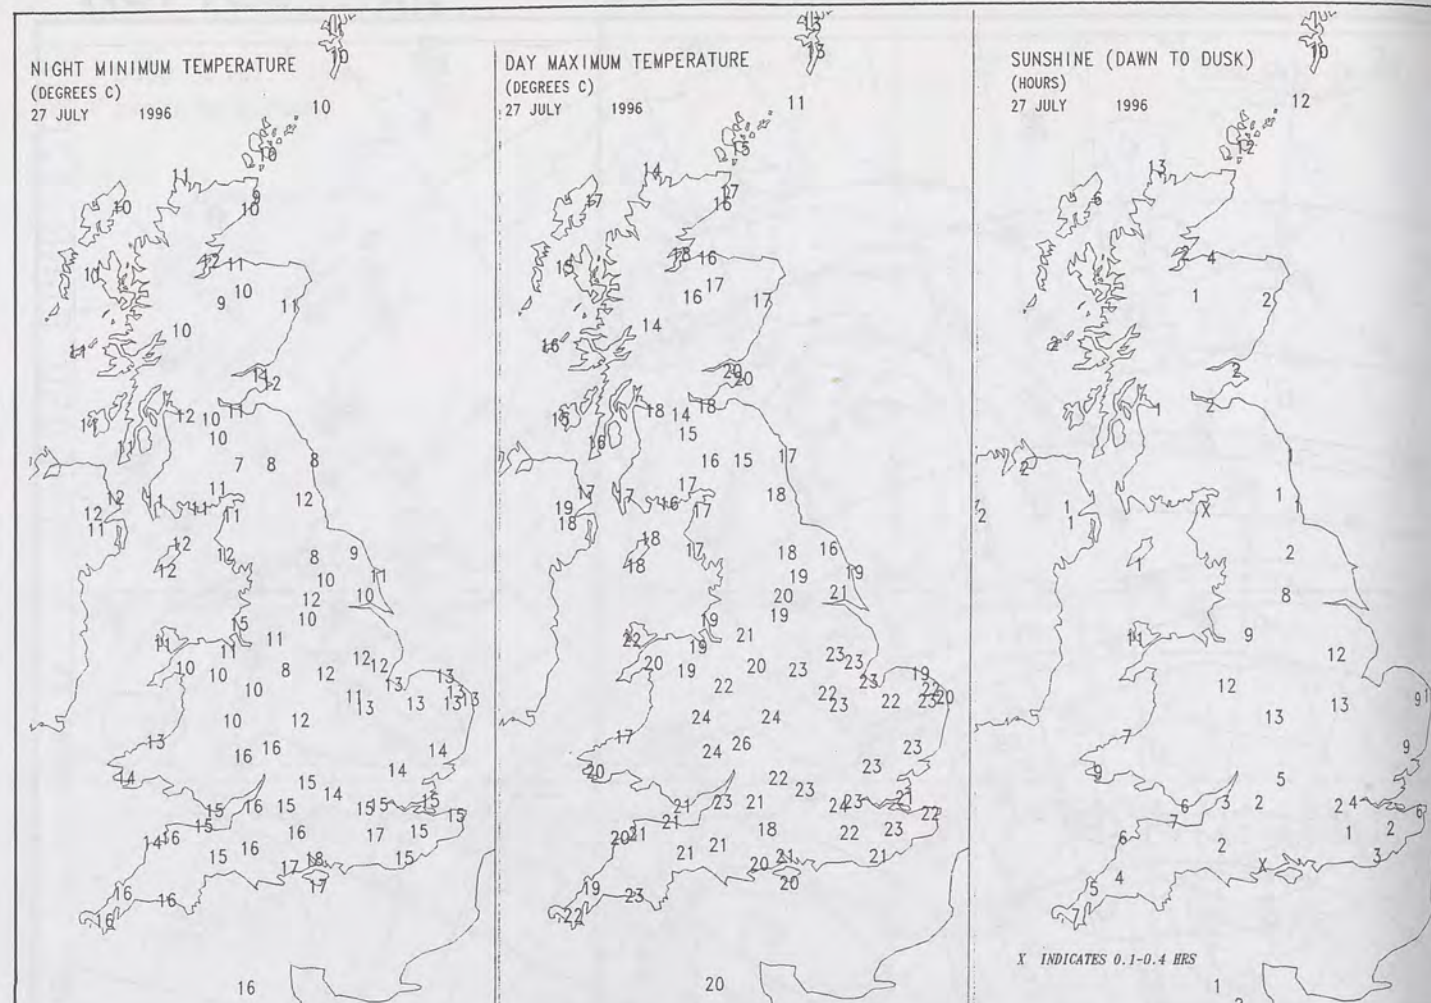 NIGHT MINIMUM TEMPERATURE
(DEGREES C)
27 JULY 1996
10
10
10
11
9
10
10
12
11
10
10
9
11
10
11
12
12
11
10
11
10
7
8
8
11
12
12
12
11
11
11
12
12
12
8
9
10
11
10
12
10
15
11
11
11
10
10
8
12
12
12
10
13
13
11
13
13
13
13
10
12
13
16
16
14
14
14
15
14
15
16
15
15
15
15
15
15
14
16
16
17
15
15
16
15
17
18
17
16
16
16
16
DAY MAXIMUM TEMPERATURE
(DEGREES C)
27 JULY 1996
13
13
11
15
14
17
17
16
18
16
15
17
16
17
14
16
20
20
18
14
18
15
16
16
15
17
17
17
19
18
16
17
18
18
17
18
18
16
17
19
19
20
21
19
19
22
21
19
20
19
20
23
23
23
22
23
19
22
23
22
23
20
24
24
17
24
26
23
20
22
23
23
21
23
21
24
23
21
22
21
20
21
18
22
23
21
21
20
21
21
20
19
23
22
20
SUNSHINE (DAWN TO DUSK)
(HOURS)
27 JULY 1996
10
12
12
13
6
2
4
1
2
2
2
2
1
2
1
1
1
1
2
X
2
1
8
11
9
12
12
13
13
9
7
9
9
5
6
3
2
2
4
6
7
6
1
2
2
3
X
4
5
7
X INDICATES 0.1-0.4 HRS
1